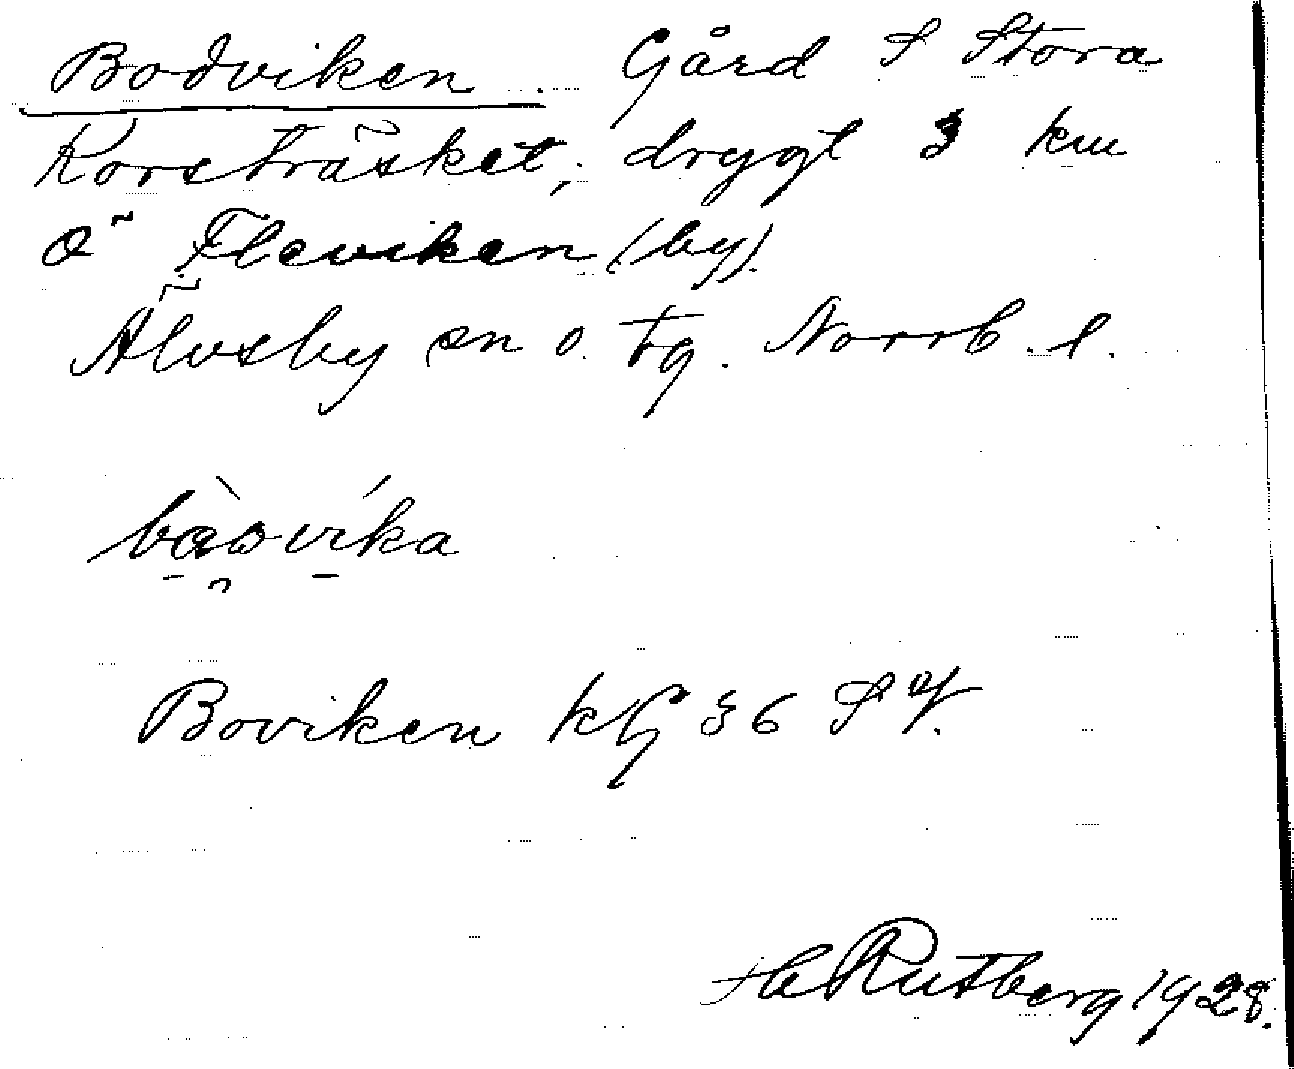 Bodviken Gård S Stora
Korsträsket, drygt 3 km
Ö Fleviken (by).
Älvsby sn o. tg. Norrb. l.
Boviken kG 36 SV.
H Rutberg 1928.